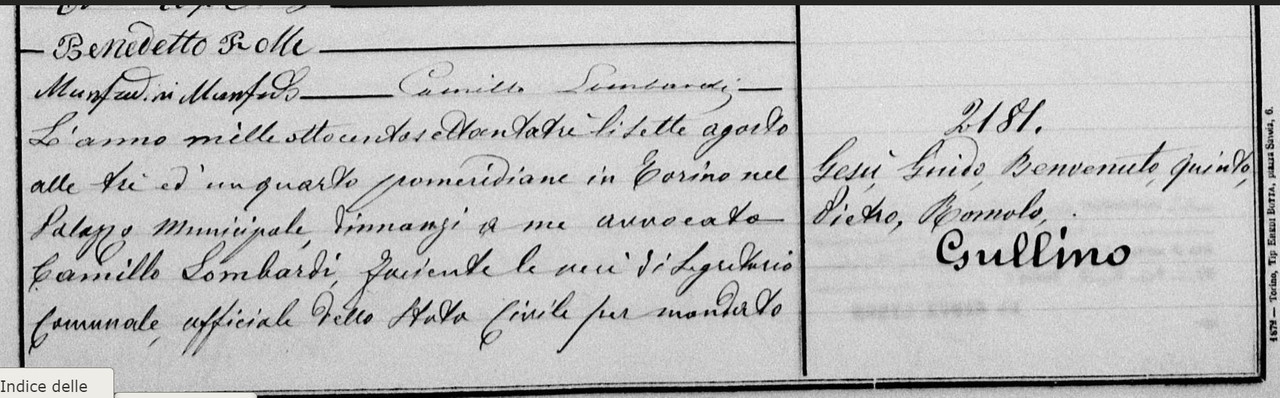 Benedetto Rolle
Manfredini Manfredo Camillo Lombardi
L'anno mille ottocento settantatrè li sette agosto
alle tre ed un quarto pomeridiane in Torino nel
Palazzo Municipale, dinnanzi a me avvocato
Camillo Lombardi, facente le veci di Segretario
Comunale, uffiziale dello Stato Civile per mandato
2181.
Gesù, Guido, Benvenuto, Quinto,
Pietro, Romolo,
Gullino
1872 — Torino, Tip. Eredi Botta, piazza
Indice delle